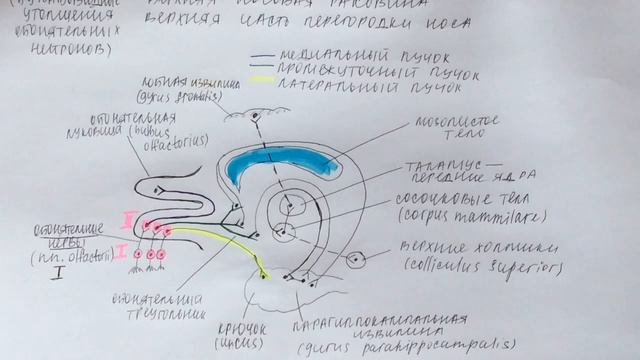 утолщения
обонятельных
нейронов)
верхняя носовая раковина
верхняя часть перегородки носа
— медиальный пучок
— промежуточный пучок
— латеральный пучок
лобная извилина
(gyrus frontalis)
обонятельная
луковица (bulbus
olfactorius)
мозолистое
тело
таламус —
передние ядра
сосочковые тела
(corpus mammilare)
верхние холмики
(colliculus superior)
обонятельные
нервы
(nn. olfactorii)
I
I
I
обонятельный
треугольник
крючок
(uncus)
парагиппокампальная
извилина
(gyrus parahippocampalis)